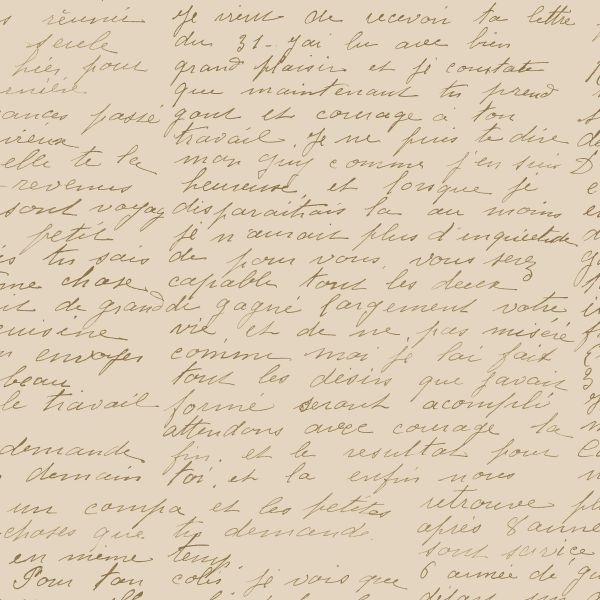 s réunir
seule
hier pour
ances passé
elle te la
revenus
sont voyag
petit
is tu sais
me chose
it de grand
cuisine
envoyer
beau
le travail
demande
demain
un compa
choses que
en même
Pour ton
Je vient de recevoir ta lettre
du 31 - j'ai lu avec bien
grand plaisir et je constate
que maintenant tu prend
gout et courage à ton
travail. Je ne puis te dire
mon Guy comme j'en suis
heureuse, et lorsque je
disparaîtrais la au moins
je n'aurait plus d'inquietude
de pour vous, vous serez
capable tout les deux
de gagné largement votre
vie et de ne pas miséré
comme moi je l'ai fait
tout les désirs que j'avait
formé seront acompli
attendons avec courage la
fin, et le resultat pour
toi, et la enfin nous
et les petites
tu demande.
temp.
colis je vois que
retrouve
après 8 anne
sont service
6 année de